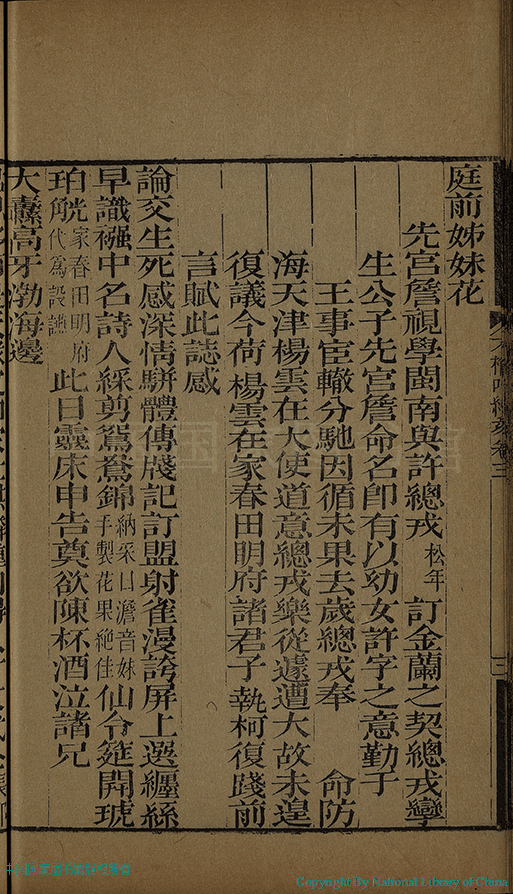 庭前姊妹花
先宮詹視學閩南與許總戎松年訂金蘭之契總戎孿
生公子先宮詹命名即有以幼女許字之意勤子
王事宦轍分馳因循未果去歲總戎奉　命防
海天津楊雲在大使道意總戎樂從遽遭大故未遑
復議今荷楊雲在家春田明府諸君子執柯復踐前
言賦此誌感
論交生死感深情駢體傳牋記訂盟射雀漫誇屏上選纏絲
早識襁中名詩人綵剪鴛鴦錦納采日澹音妹手製花果絶佳仙令筵開琥
珀光家春田明府角代爲設讌此日靈床申告奠欲陳杯酒泣諸兄
大纛高牙渤海邊
卷三
三
Copyright By National Library of China